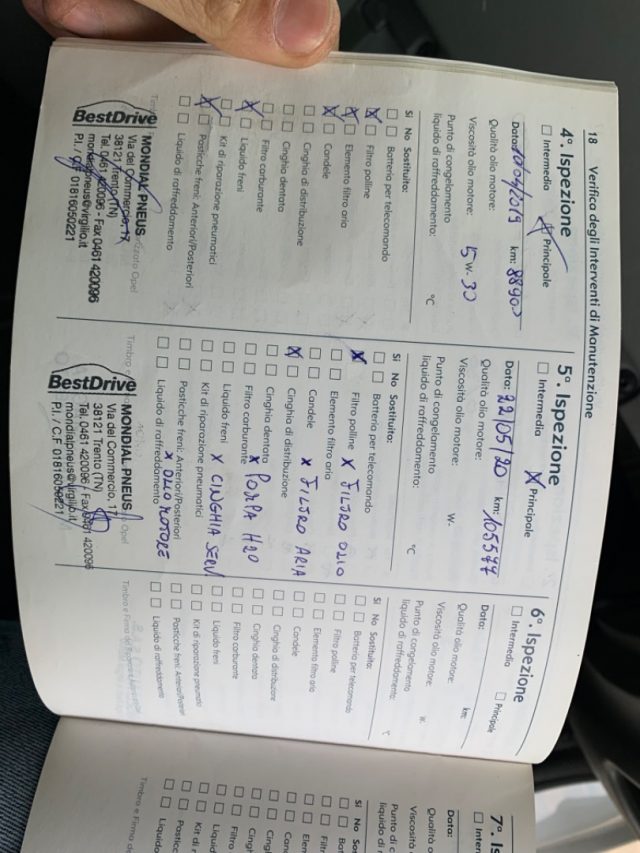 18 Verifica degli Interventi di Manutenzione
4ª. Ispezione
☐ Intermedia ☒ Principale
Data: 10/04/2019 km: 88900
Qualità olio motore:
Viscosità olio motore: 5W-30
Punto di congelamento
liquido di raffreddamento: °C
Si No Sostituito:
☐ ☐ Batteria per telecomando
☒ ☐ Filtro polline
☒ ☐ Elemento filtro aria
☒ ☐ Candele
☐ ☐ Cinghia di distribuzione
☐ ☐ Cinghia dentata
☐ ☐ Filtro carburante
☒ ☐ Liquido freni
☐ ☐ Kit di riparazione pneumatici
☒ ☐ Pasticche freni: Anteriori/Posteriori
☐ ☐ Liquido di raffreddamento
BestDrive
MONDIAL PNEUS
Via del Commercio, 17
38121 Trento (TN)
Tel. 0461 420096 - Fax 0461 420096
mondialpneus@virgilio.it
P.I./ C.F. 01816050221
5ª. Ispezione
☐ Intermedia ☒ Principale
Data: 22/05/20 km: 105577
Qualità olio motore:
Viscosità olio motore: W-
Punto di congelamento
liquido di raffreddamento: °C
Si No Sostituito:
☐ ☐ Batteria per telecomando
☒ ☐ Filtro polline X FILTRO OLIO
☐ ☐ Elemento filtro aria
☐ ☐ Candele X FILTRO ARIA
☒ ☐ Cinghia di distribuzione
☐ ☐ Cinghia dentata
☐ ☐ Filtro carburante X POMPA H2O
☐ ☐ Liquido freni X CINGHIA SERV
☐ ☐ Kit di riparazione pneumatici
☐ ☐ Pasticche freni: Anteriori/Posteriori
☐ ☐ Liquido di raffreddamento
BestDrive
MONDIAL PNEUS
Via del Commercio, 17
38121 Trento (TN)
Tel. 0461 420096 / Fax 0461 420096
mondialpneus@virgilio.it
P.I. / C.F 01816050221
6ª. Ispezione
☐ Intermedia ☐ Principale
Data: km:
Qualità olio motore:
Viscosità olio motore: W-
Punto di congelamento
liquido di raffreddamento: °C
Si No Sostituito:
☐ ☐ Batteria per telecomando
☐ ☐ Filtro polline
☐ ☐ Elemento filtro aria
☐ ☐ Candele
☐ ☐ Cinghia di distribuzione
☐ ☐ Cinghia dentata
☐ ☐ Filtro carburante
☐ ☐ Liquido freni
☐ ☐ Kit di riparazione pneumatici
☐ ☐ Pasticche freni: Anteriori/Posteriori
☐ ☐ Liquido di raffreddamento
Timbro e Firma del
7ª. Is
☐ Inter
Data:
Qualità
Viscosità
Punto di c
liquido di
Si No Sos
☐ ☐ Bat
☐ ☐ Filtr
☐ ☐ Elem
☐ ☐ Cand
☐ ☐ Cingh
☐ ☐ Cingh
☐ ☐ Filtro
☐ ☐ Liquid
☐ ☐ Kit di
☐ ☐ Pasticc
☐ ☐ Liquido
Timbro e Firma de